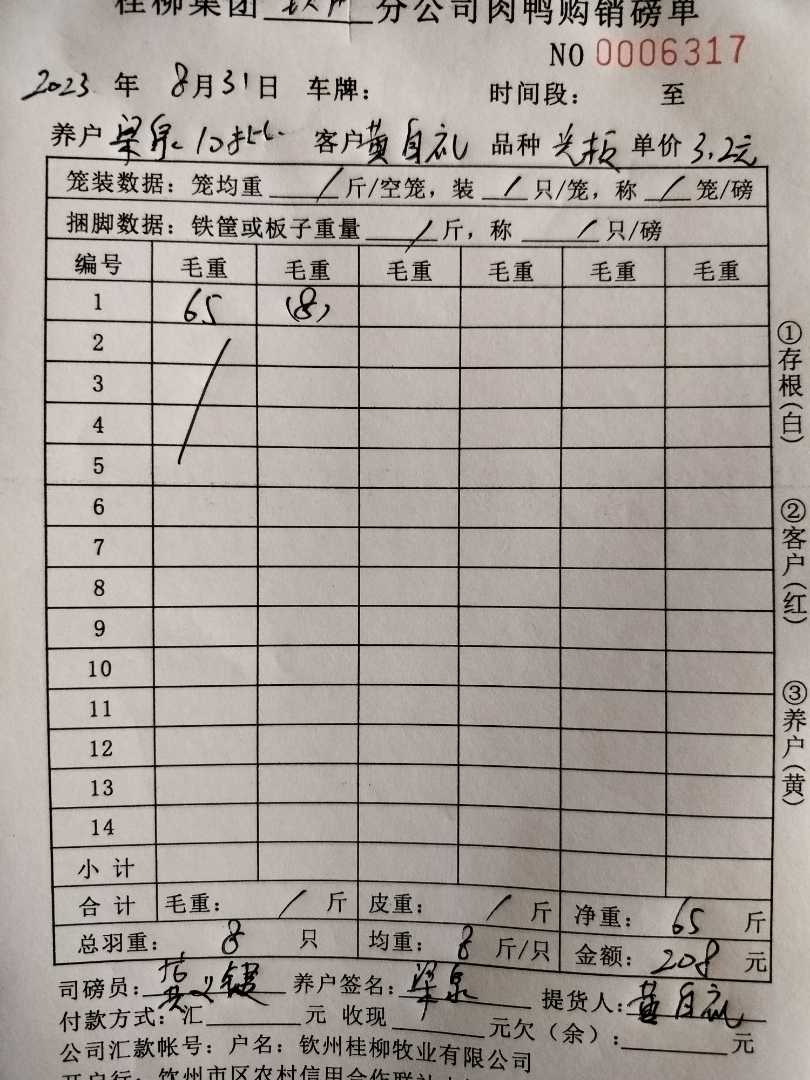 桂柳集团 钦州 分公司肉鸭购销磅单
NO 0006317
2023 年 8月31日 车牌: 时间段: 至
养户 梁泉 10批 客户 黄自礼 品种 单价 3.2元
笼装数据: 笼均重 / 斤/空笼, 装 / 只/笼, 称 / 笼/磅
捆脚数据: 铁筐或板子重量 / 斤, 称 / 只/磅
编号 毛重 毛重 毛重 毛重 毛重 毛重
1 65 (8)
2
3
4
5
6
7
8
9
10
11
12
13
14
小计
合计 毛重: / 斤 皮重: / 斤 净重: 65 斤
总羽重: 8 只 均重: 8 斤/只 金额: 208 元
司磅员: 养户签名: 梁泉 提货人: 黄自礼
付款方式: 汇 元 收现 元欠(余): 元
公司汇款帐号: 户名: 钦州桂柳牧业有限公司
开户行: 钦州市区农村信用合作联社
①存根(白)
②客户(红)
③养户(黄)